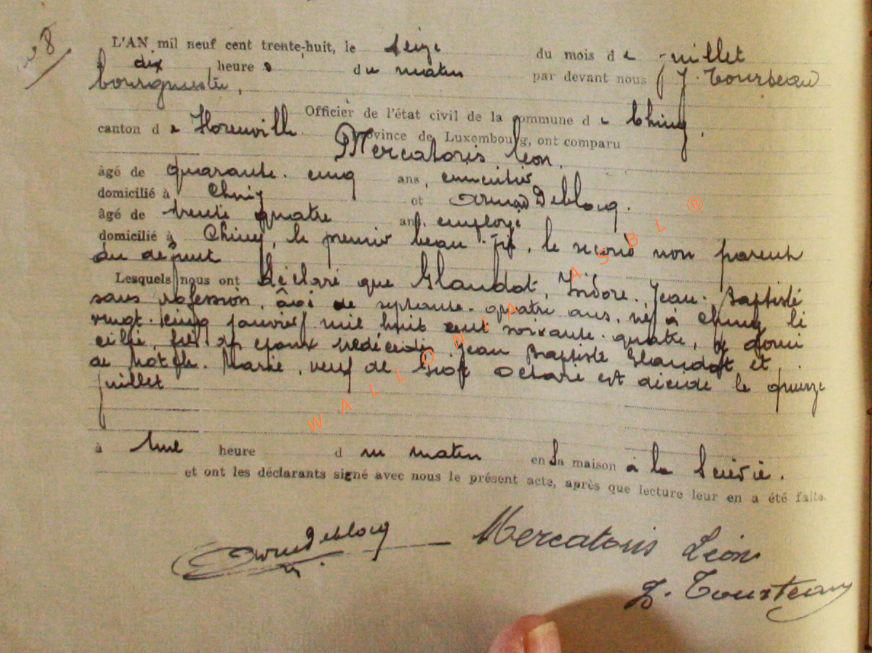 n° 8
L'AN mil neuf cent trente-huit, le seize du mois de juillet
dix heures du matin par devant nous J. Tourteau
bourgmestre,
Officier de l'état civil de la commune de Chiny,
canton de Florenville province de Luxembourg, ont comparu
Mercatoris Léon,
âgé de quarante-cinq ans,
domicilié à Chiny et Armand Deblocq.
âgé de trente quatre ans employé
domicilié à Chiny, le premier beau-fils, le second non parent
du défunt
Lesquels nous ont déclaré que Glaudot, Isidore, Jean-Baptiste
sans profession, âgé de septante-quatre ans, né à Chiny le
vingt-cinq janvier mil huit cent soixante-quatre, y domi
cilié, fils des époux Jean Baptiste Glaudot et
de Marie, veuf de Octavie est décédé le quinze
juillet
à une heure du matin en sa maison à la Scierie.
et ont les déclarants signé avec nous le présent acte, après que lecture leur en a été faite.
Armand Deblocq Mercatoris Léon
J. Tourteau
WALLONIA ASBL ®